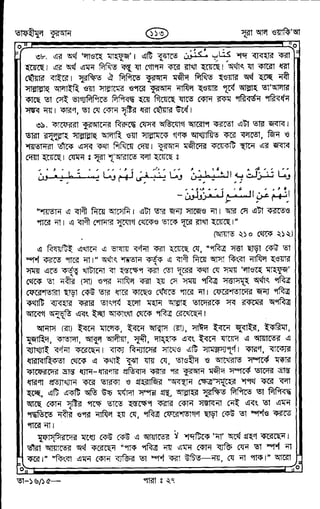 তাফহীমুল কুরআন
১১৩
সূরা আল ওয়াকি'আ
৩৮. এর অর্থ 'লাওহে মাহফূজ'। এটি বুঝাতে كِتَابٌ مَّكْنُونٌ শব্দ ব্যবহার করা
হয়েছে। এর অর্থ এমন লিখিত বস্তু যা গোপন করে রাখা হয়েছে। অর্থাৎ যা কারো ধরা
ছোঁয়ার বাইরে। সুরক্ষিত ঐ লিপিতে কুরআন মজীদ লিখিত হওয়ার অর্থ হচ্ছে নবী
সাল্লাল্লাহু আলাইহি ওয়া সাল্লামের ওপরে কুরআন নাযিল হওয়ার পূর্বে আল্লাহ তা'আলার
কাছে তা সেই তাকদীরিলিপিতে লিপিবদ্ধ হয়ে গিয়েছে যাতে কোন রকম পরিবর্তন পরিবর্ধন
সম্ভব নয়। কারণ, তা যে কোন সৃষ্টির ধরা ছোঁয়ার ঊর্ধে।
৩৯. কাফেররা কুরআনের বিরুদ্ধে যেসব অভিযোগ আরোপ করতো এটা তার জবাব।
তারা রসূলুল্লাহ সাল্লাল্লাহু আলাইহি ওয়া সাল্লামকে গণক আখ্যায়িত করে বলতো, জিন ও
শয়তানরা তাঁকে এসব কথা শিখিয়ে দেয়। কুরআন মজীদের কয়েকটি স্থানে এর জবাব
দেয়া হয়েছে। যেমন : সূরা শূ'আরাতে বলা হয়েছে :
وَمَا تَنَزَّلَتْ بِهِ الشَّيٰطِيْنُ ۝ وَمَا يَنْبَغِىْ لَهُمْ وَمَا يَسْتَطِيْعُوْنَ ۝
اِنَّهُمْ عَنِ السَّمْعِ لَمَعْزُوْلُوْنَ -
"শয়তান এ বাণী নিয়ে আসেনি। এটা তার জন্য সাজেও না। আর সে এটা করতেও
পারে না। এ বাণী শোনার সুযোগ থেকেও তাকে দূরে রাখা হয়েছে।"
(আয়াত ২১০ থেকে ২১২)
এ বিষয়টিই এখানে এ ভাষায় বর্ণনা করা হয়েছে যে, "পবিত্র সত্তা ছাড়া কেউ তা
স্পর্শ করতে পারে না।" অর্থাৎ শয়তান কর্তৃক এ বাণী নিয়ে আসা কিংবা নাযিল হওয়ার
সময় এতে কর্তৃত্ব খাটানো বা হস্তক্ষেপ করা তো দূরের কথা যে সময় 'লাওহে মাহফূজ'
থেকে তা নবীর (সা) ওপর নাযিল করা হয় সে সময় পবিত্র সত্তাসমূহ অর্থাৎ পবিত্র
ফেরেশতারা ছাড়া কেউ তার ধারে কাছেও ঘেঁষতে পারে না। ফেরেশতাদের জন্য পবিত্র
কথাটি ব্যবহার করার তাৎপর্য হলো মহান আল্লাহ তাদেরকে সব রকমের অপবিত্র
আবেগ অনুভূতি এবং ইচ্ছা আকাংখা থেকে পবিত্র রেখেছেন।
আনাস (রা) ইবনে মালেক, ইবনে আব্বাস (রা), সাঈদ ইবনে জুবাইর, ইকরিমা,
মুজাহিদ, কাতাদা, আবুল আলীয়া, সুদ্দী, দাহ্হাক এবং ইবনে যায়েদ এ আয়াতের এ
ব্যাখ্যাই বর্ণনা করেছেন। বাক্য বিন্যাসের সাথেও এটি সামঞ্জস্যপূর্ণ। কারণ, বাক্যের
ধারাবাহিকতা থেকে এ কথাই বুঝা যায় যে, তাওহীদ ও আখেরাত সম্পর্কে মক্কার
কাফেরদের ভ্রান্ত ধ্যান-ধারণার প্রতিবাদ করার পর কুরআন মজীদ সম্পর্কে তাদের ভ্রান্ত
ধারণা প্রত্যাখ্যান করে
হচ্ছে, এটি একটি অতি উচ্চ মর্যাদা সম্পন্ন গ্রন্থ, আল্লাহর সুরক্ষিত লিপিতে তা লিপিবদ্ধ
আছে কোন সৃষ্টির পক্ষে তাতে হস্তক্ষেপ করার কোন সম্ভাবনা নেই এবং তা এমন
পদ্ধতিতে নবীর ওপর নাযিল হয় যে, পবিত্র ফেরেশতাগণ ছাড়া কেউ তা স্পর্শও করতে
পারে না।
মুফাস্সিরদের মধ্যে কেউ কেউ এ আয়াতের لا শব্দটিকে 'না' অর্থে গ্রহণ করেছেন।
তাঁরা আয়াতের অর্থ করেছেন "পাক পবিত্র নয় এমন কোন ব্যক্তি যেন তা স্পর্শ না
করে।" "কিংবা এমন কোন ব্যক্তির তা স্পর্শ করা উচিত—নয়, যে না পাক।" আরো
তা-১৬/১৫—
পারা : ২৭